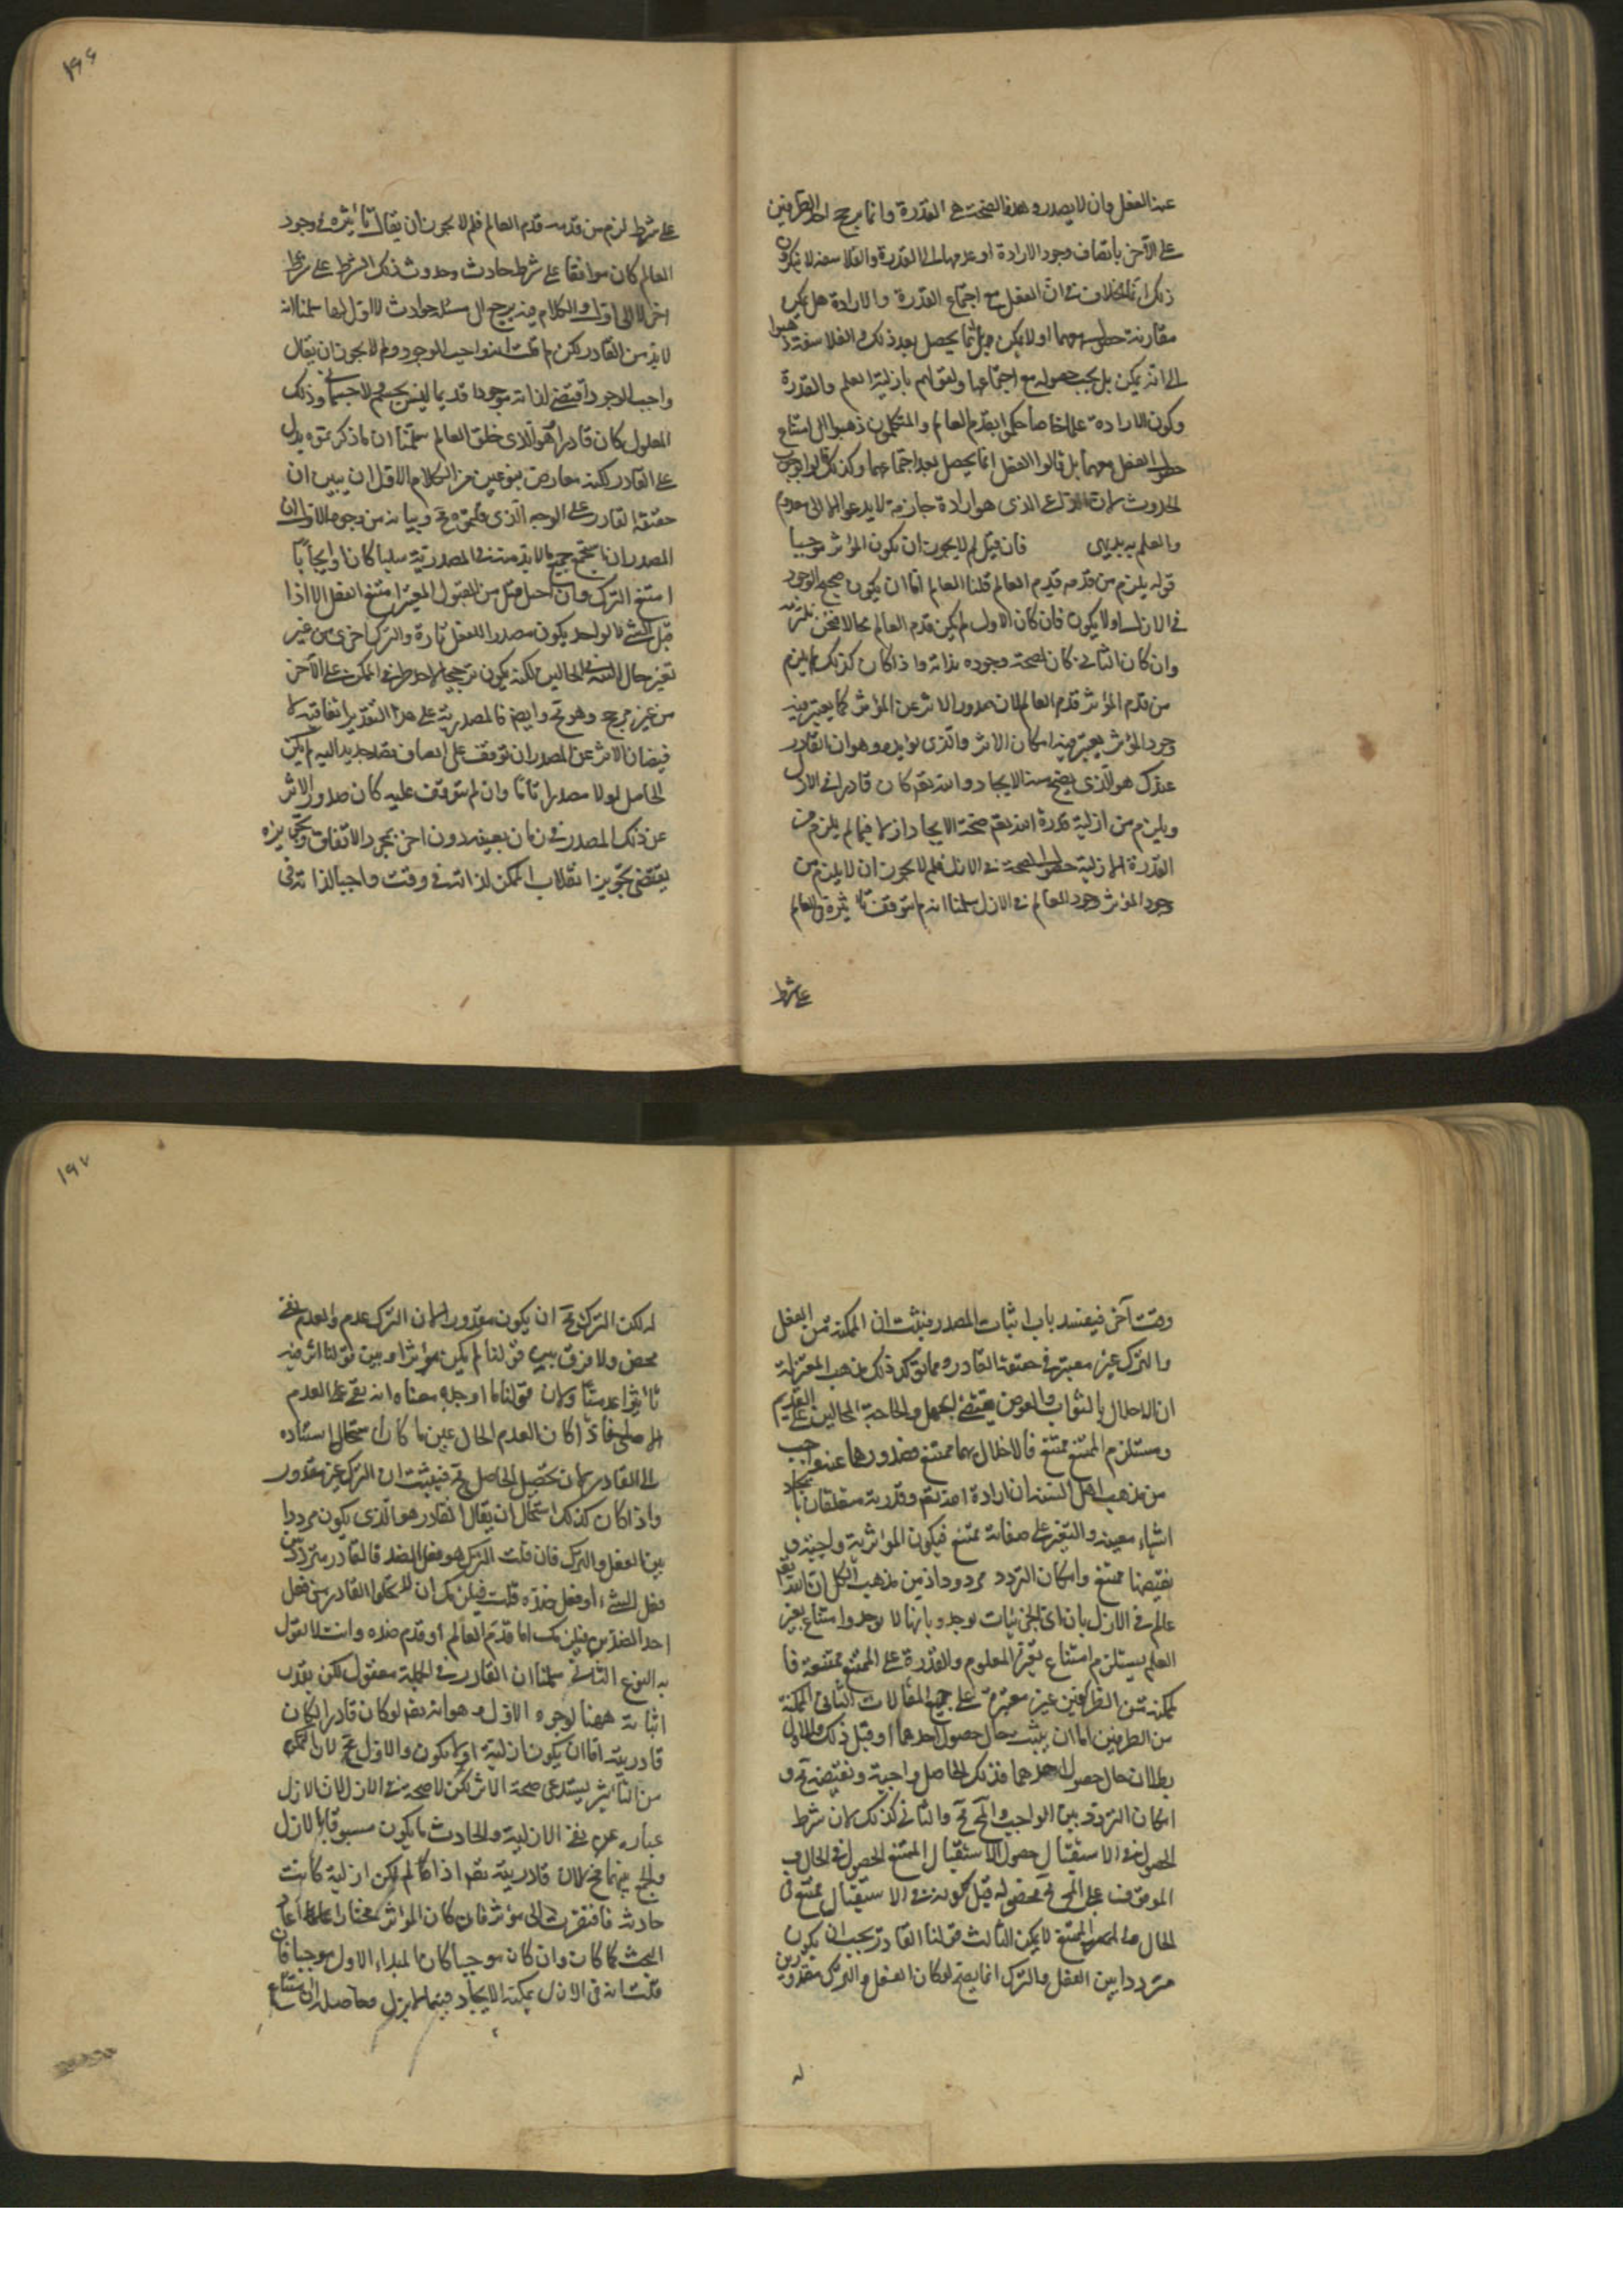 عنه الفعل وان لا يصدر وهذه الصحة هى القدرة وانما يرجح احد الطرفين
على الآخر بانضاف وجود الارادة او عدمها الى القدرة والفلاسفة لا ينكرون
ذلك انما الخلاف فى ان الفعل مع اجتماع القدرة والارادة هل يمكن
مقارنة حصوله معهما او لا يمكن بل انما يحصل بعد ذلك والفلاسفة ذهبوا
الى انه يمكن بل يجب حصوله مع اجتماعهما ولقولهم بازلية العلم والقدرة
وكون الارادة علما خاصا حكموا بقدم العالم والمتكلمون ذهبوا الى امتناع
حصول الفعل معهما بل قالوا الفعل انما يحصل بعد اجتماعهما وكذلك قالوا بوجوب
الحدوث لان الداعى الذى هو ارادة جازمة لا يدعو الا الى معدوم
والعلم به بديهى فان قيل لم لا يجوز ان يكون المؤثر موجبا
قوله يلزم من قدمه قدم العالم قلنا العالم اما ان يكون صحيح الوجود
فى الازل او لا يكون فان كان الاول لم يكن قدم العالم محالا فنحن نلتزمه
وان كان الثانى كان لصحة وجوده بداية واذا كان كذلك لم يلزم
من قدم المؤثر قدم العالم لان صدور الاثر عن المؤثر كما يعتبر فيه
وجود المؤثر يعتبر فيه امكان الاثر والذى يؤيده وهو ان القادر
عندك هو الذى يصح منه الايجاد والله تعم كان قادرا فى الازل
ويلزم من ازلية قدرة الله تعم صحة الايجاد ازلا فيما لم يلزم من
القدرة الازلية حصول الصحة فى الازل فلم لا يجوز ان لا يلزم من
وجود المؤثر وجود العالم فى الازل سلمنا انه لم يتوقف تاثيره فى العالم
على شرط
١٩٦
على شرط لزم من قدمه قدم العالم فلم لا يجوز ان يقال تاثيره فى وجود
العالم كان موقوفا على شرط حادث وحدوث ذلك الشرط على شرط
اخر لا الى اول والكلام فيه يرجع الى مسئلة حوادث لا اول لها سلمنا انه
لا بد من القادر لكن لم قلت انه واجب الوجود ولم لا يجوز ان يقال
واجب الوجود اقتضى لذاته موجودا قديما ليس بجسم ولا جسمانى وذلك
المعلول كان قادرا وهو الذى خلق العالم سلمنا ان ما ذكرتموه يدل
على القادر لكنه معارض بنوعين من الكلام الاول ان نبين ان
حقيقة القادر على الوجه الذى قلتموه مح وبيانه من وجوه الاول ان
المصدر ان استجمع جميع ما لا بد منه فى المصدرية سلبا كان او ايجابا
امتنع الترك وان اختل قيد من القيود المعتبرة امتنع الفعل الا اذا
قيل الشىء الواحد يكون مصدرا للفعل تارة والترك اخرى من غير
تغير حال البتة فى الحالين لكنه يكون ترجيحا لاحد طرفى الممكن على الآخر
من غير مرجح وهو مح وايضا فالمصدرية على هذا التقدير اتفاقية لان
فيضان الاثر عن المصدر ان توقف على انضياف قصد جديد اليه لم يكن
الحاصل اولا مصدرا تاما وان لم يتوقف عليه كان صدور الاثر
عن ذلك المصدر فى زمان بعينه دون اخر بمجرد الاتفاق وتجويزه
يقتضى تجويز انقلاب الممكن لذاته فى وقت واجبا لذاته فى
وقت آخر فيفسد باب اثبات المصدر فيثبت ان المكنة من الفعل
والترك غير معتبر فى حقيقة القادر ومما يؤكد ذلك من مذهب المعتزلة
ان الاخلال بالثواب والعوض يقتضى الجهل والحاجة المحالين على القديم
ومستلزم الممتنع ممتنع فالاخلال بهما ممتنع فصدورهما عنه واجب
من مذهب اهل السنة ان ارادة الله تعم وقدرته متعلقان بايجاد
اشياء معينة والتغير على صفاته ممتنع فيكون المؤثرية واجبة و
نقيضها ممتنع وامكان التردد مردود اذ من مذهب الكل ان الله تعم
عالم فى الازل بان اى الجزئيات يوجد وبانها لا يوجد وامتناع تغير
العلم يستلزم امتناع تغير المعلوم والقدرة على الممتنع ممتنعة فا
لمكنة من الطرفين غير معتبرة على جميع المقالات الثانى المكنة
من الطرفين اما ان يثبت حال حصول احدهما او قبل ذلك والاول
بط لان حال حصول احدهما فذلك الحاصل واجبة ونقيضه مح و
امكان التردد بين الواجب والمح مح والثانى كذلك لان شرط
الحصول فى الاستقبال حصول الاستقبال الممتنع الحصول فى الحال و
الموقوف على المح مح فحصوله قبل كونه فى الاستقبال ممتنع فى
الحال والممتنع لا يمكن الثالث قولنا القادر يجب ان يكون
مترددا بين الفعل والترك انما يصح لو كان الفعل والترك مقدورين
له
١٩٧
له لكن الترك مح ان يكون مقدورا لان الترك عدم والعدم نفى
محض ولا فرق بين قولنا لم يكن مؤثرا وبين قولنا اثر فيه
تاثيرا عدميا ولان قولنا ما اوجد معناه انه بقى على العدم
الاصلى فاذا كان العدم الحال عين ما كان استحال استناده
الى القادر لان تحصيل الحاصل مح فيثبت ان الترك غير مقدور
واذا كان كذلك استحال ان يقال القادر هو الذى يكون مرددا
بين الفعل والترك فان قلت الترك هو فعل الضد فالقادر متردد بين
فعل الشىء او فعل ضده قلت فيلزمك ان لا يخلو القادر من فعل
احد الضدين فيلزمك اما قدم العالم او قدم ضده وانت لا تقول
به النوع الثانى سلمنا ان القادر فى الجملة معقول لكن يتعذر
اثباته ههنا لوجوه الاول وهو انه تعم لو كان قادرا لكان
قادريته اما ان يكون ازلية او لا يكون والاول مح لان التمكن
من التاثير يستدعى صحة الاثر لكن لا صحة فى الازل لان الازل
عبارة عن نفى الاولية والحادث ما يكون مسبوقا بالازل
والجمع بينهما مح لان قادرية تعم اذا لم تكن ازلية كانت
حادثة فافتقرت الى مؤثر فان كان المؤثر مختارا عاد
البحث كما كان وان كان موجبا كان المبداء الاول موجبا فان
قلت انه فى الازل يمكنه الايجاد فيما لا يزل وحاصله ان امتناع